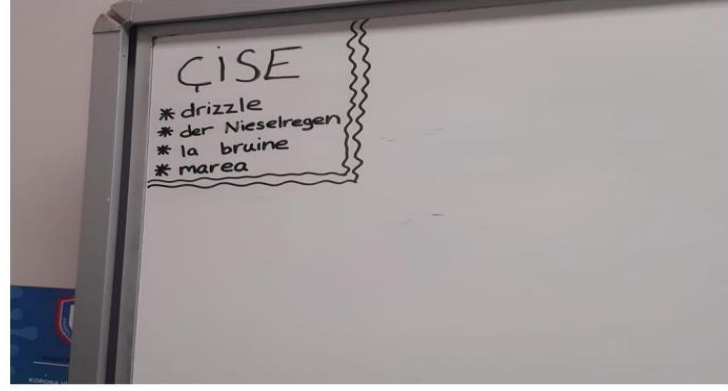 ÇİSE
* drizzle
* der Nieselregen
* la bruine
* marea